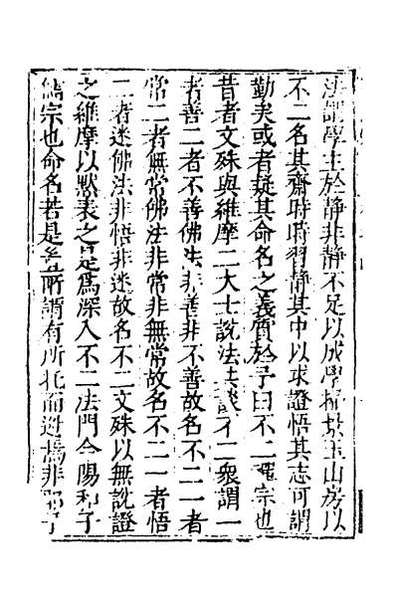 法謂學主於靜非靜不足以成學玉山房以
不二名其齋時時習靜其中以求證悟其志可謂
勤矣或者疑其命名之義質於予曰不二禪宗也
昔者文殊與維摩二大士說法共談不二衆謂一
者善二者不善佛法非善非不善故名不二一者
常二者無常佛法非常非無常故名不二一者悟
二者迷佛法非悟非迷故名不二文殊以無說證
之維摩以默表之是爲深入不二法門今陽和子
儒宗也命名若是所謂有所托而逃焉非